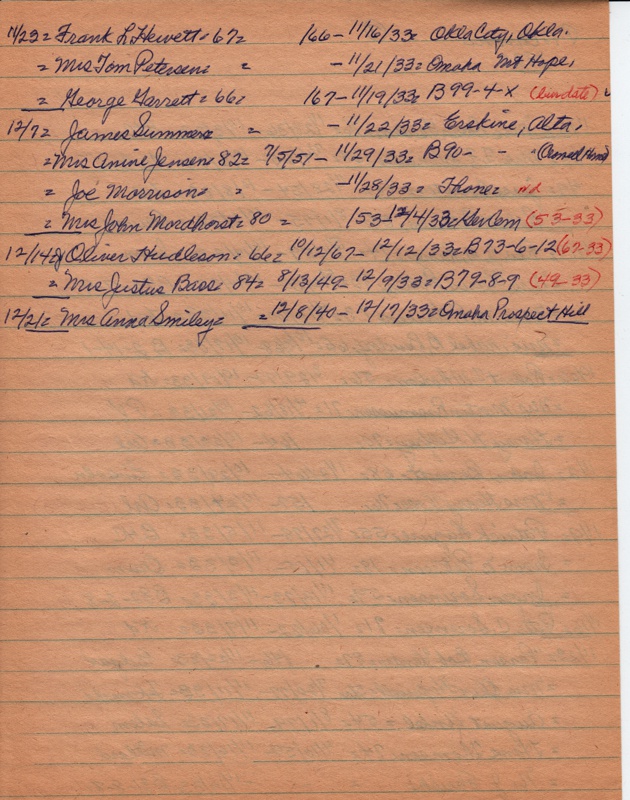 11/23= Frank L. Hewett= 67= 166- 11/16/33= Okla City, Okla.
= Mrs Tom Petersen= = - 11/21/33= Omaha Mt Hope,
= George Garrett= 66= 167- 11/19/33= B 99-4-X (burdate) ✓
12/7= James Summers= = - 11/22/33= Erskine, Alta.
= Mrs Anine Jensen= 82= 7/5/51- 11/29/33= B90- - =
= Joe Morrison= = -11/28/33= nd
= Mrs John Mordhorst= 80 = 153- 12/4/33= (53-33)
12/14= Oliver Hudleson= 66= 10/12/67- 12/12/33= B73-6-12 (67-33)
= Mrs Justus Bass= 84= 8/13/49- 12/9/33= B79-8-9 (49-33)
12/21= Mrs Anna Smiley= =12/8/40- 12/17/33= Omaha Prospect Hill